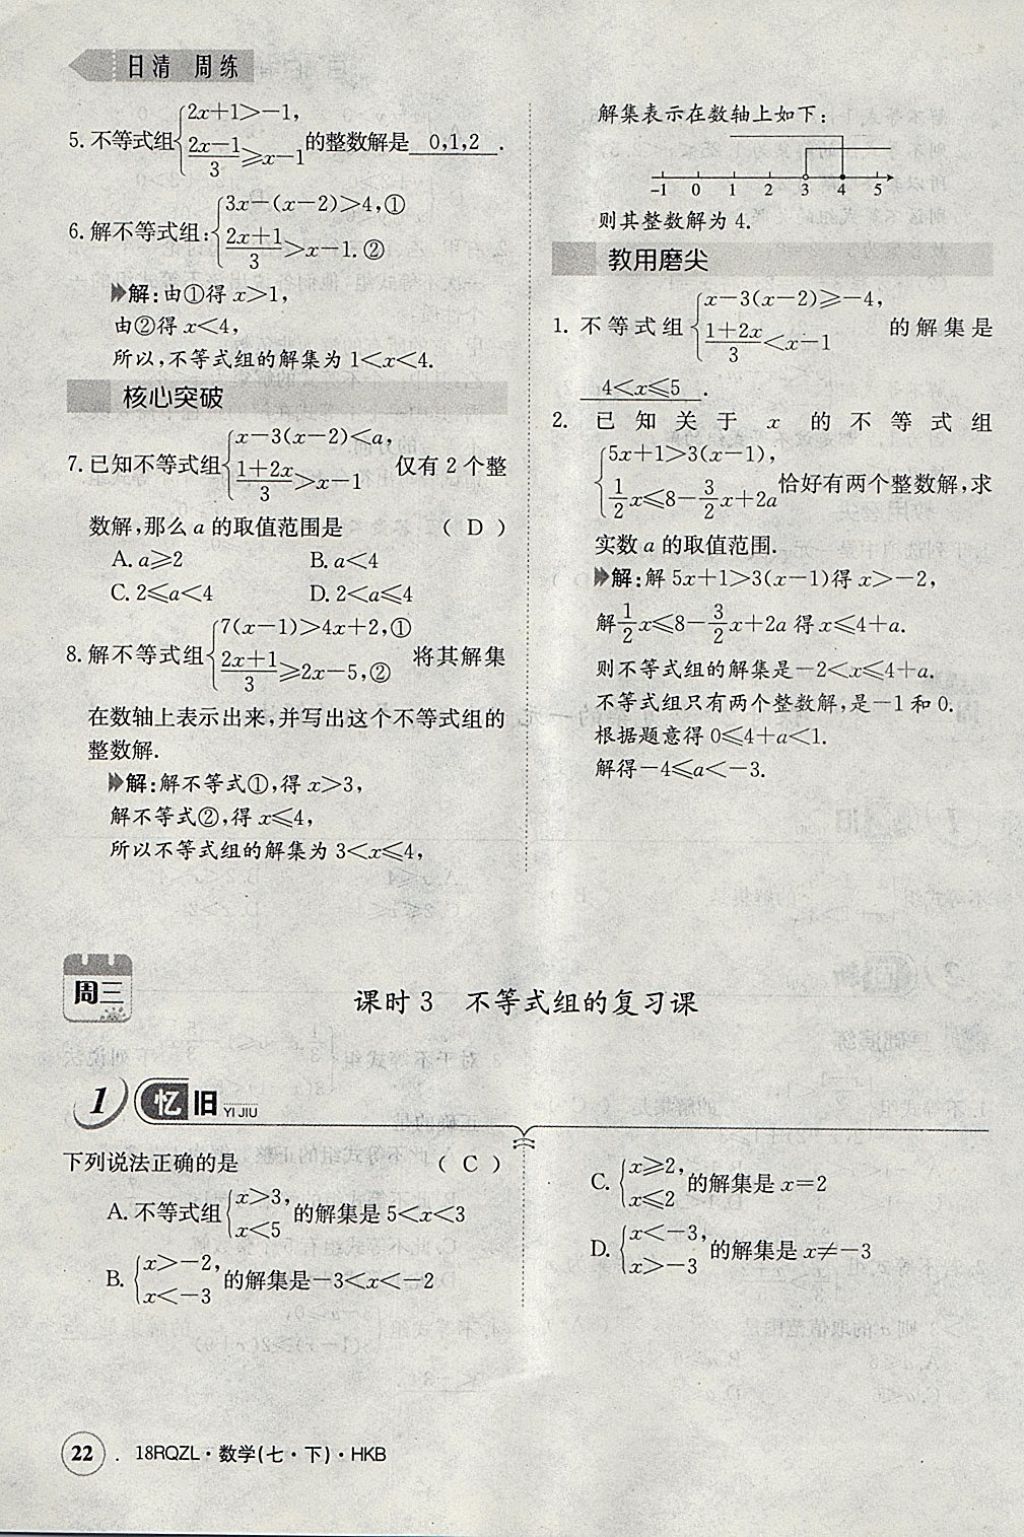 日清 周练
5. 不等式组{2x+1>-1, (2x-1)/3≥x-1 的整数解是 0,1,2 .
6. 解不等式组:{3x-(x-2)>4,① (2x+1)/3>x-1.②
解:由①得 x>1,
由②得 x<4,
所以,不等式组的解集为 1<x<4.
核心突破
7. 已知不等式组{x-3(x-2)<a, (1+2x)/3>x-1 仅有 2 个整
数解,那么 a 的取值范围是 ( D )
A. a≥2 B. a<4
C. 2≤a<4 D. 2<a≤4
8. 解不等式组{7(x-1)>4x+2,① (2x+1)/3≥2x-5,② 将其解集
在数轴上表示出来,并写出这个不等式组的
整数解.
解:解不等式①,得 x>3,
解不等式②,得 x≤4,
所以不等式组的解集为 3<x≤4,
解集表示在数轴上如下:
-1 0 1 2 3 4 5
则其整数解为 4.
教用磨尖
1. 不等式组{x-3(x-2)≥-4, (1+2x)/3<x-1 的解集是
4<x≤5 .
2. 已知关于 x 的不等式组
{5x+1>3(x-1), 1/2x≤8-3/2x+2a 恰好有两个整数解,求
实数 a 的取值范围.
解:解 5x+1>3(x-1)得 x>-2,
解1/2x≤8-3/2x+2a 得 x≤4+a.
则不等式组的解集是-2<x≤4+a.
不等式组只有两个整数解,是-1 和 0.
根据题意得 0≤4+a<1.
解得-4≤a<-3.
周三
课时 3 不等式组的复习课
1 忆旧 YI JIU
下列说法正确的是 ( C )
A. 不等式组{x>3, x<5 的解集是 5<x<3
B. {x>-2, x<-3 的解集是-3<x<-2
C. {x≥2, x≤2 的解集是 x=2
D. {x<-3, x>-3 的解集是 x≠-3
22 . 18RQZL·数学(七·下)·HKB